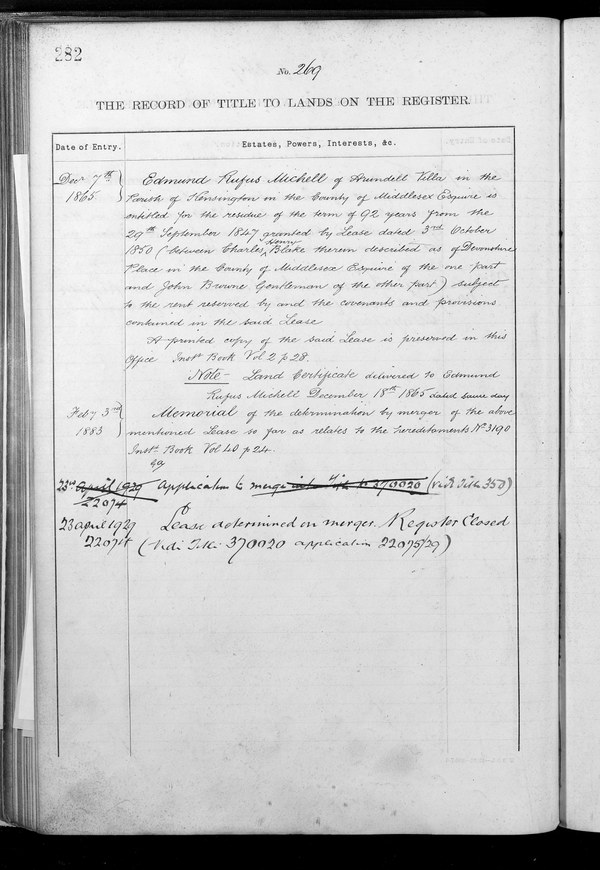 282
No. 269
THE RECORD OF TITLE TO LANDS ON THE REGISTER.
Date of Entry. Estates, Powers, Interests, &c.
Decr 7th 1865 Edmund Rufus Michell of Arundell Villa in the
Parish of Kensington in the County of Middlesex Esquire is
entitled for the residue of the term of 92 years from the
29th September 1847 granted by Lease dated 3rd October
1850 (between Charles Henry Blake therein described as of Devonshire
Place in the County of Middlesex Esquire of the one part
and John Browne Gentleman of the other part) subject
to the rent reserved by and the covenants and provisions
contained in the said Lease
A printed copy of the said Lease is preserved in this
Office Inst. Book Vol 2 p 28.
Note- Land Certificate delivered to Edmund
Rufus Michell December 18th 1865 dated same day
Feby 3rd 1883 Memorial of the determination by merger of the above
mentioned Lease so far as relates to the hereditaments No 3190
Inst. Book Vol 40 p 24.
23rd April 1929 Application to merge into Title No 370020 (Vide Title 350)
22074
23 April 1929 Lease determined on merger. Register Closed
22074 (Vide Title 370020 application 22075/29)